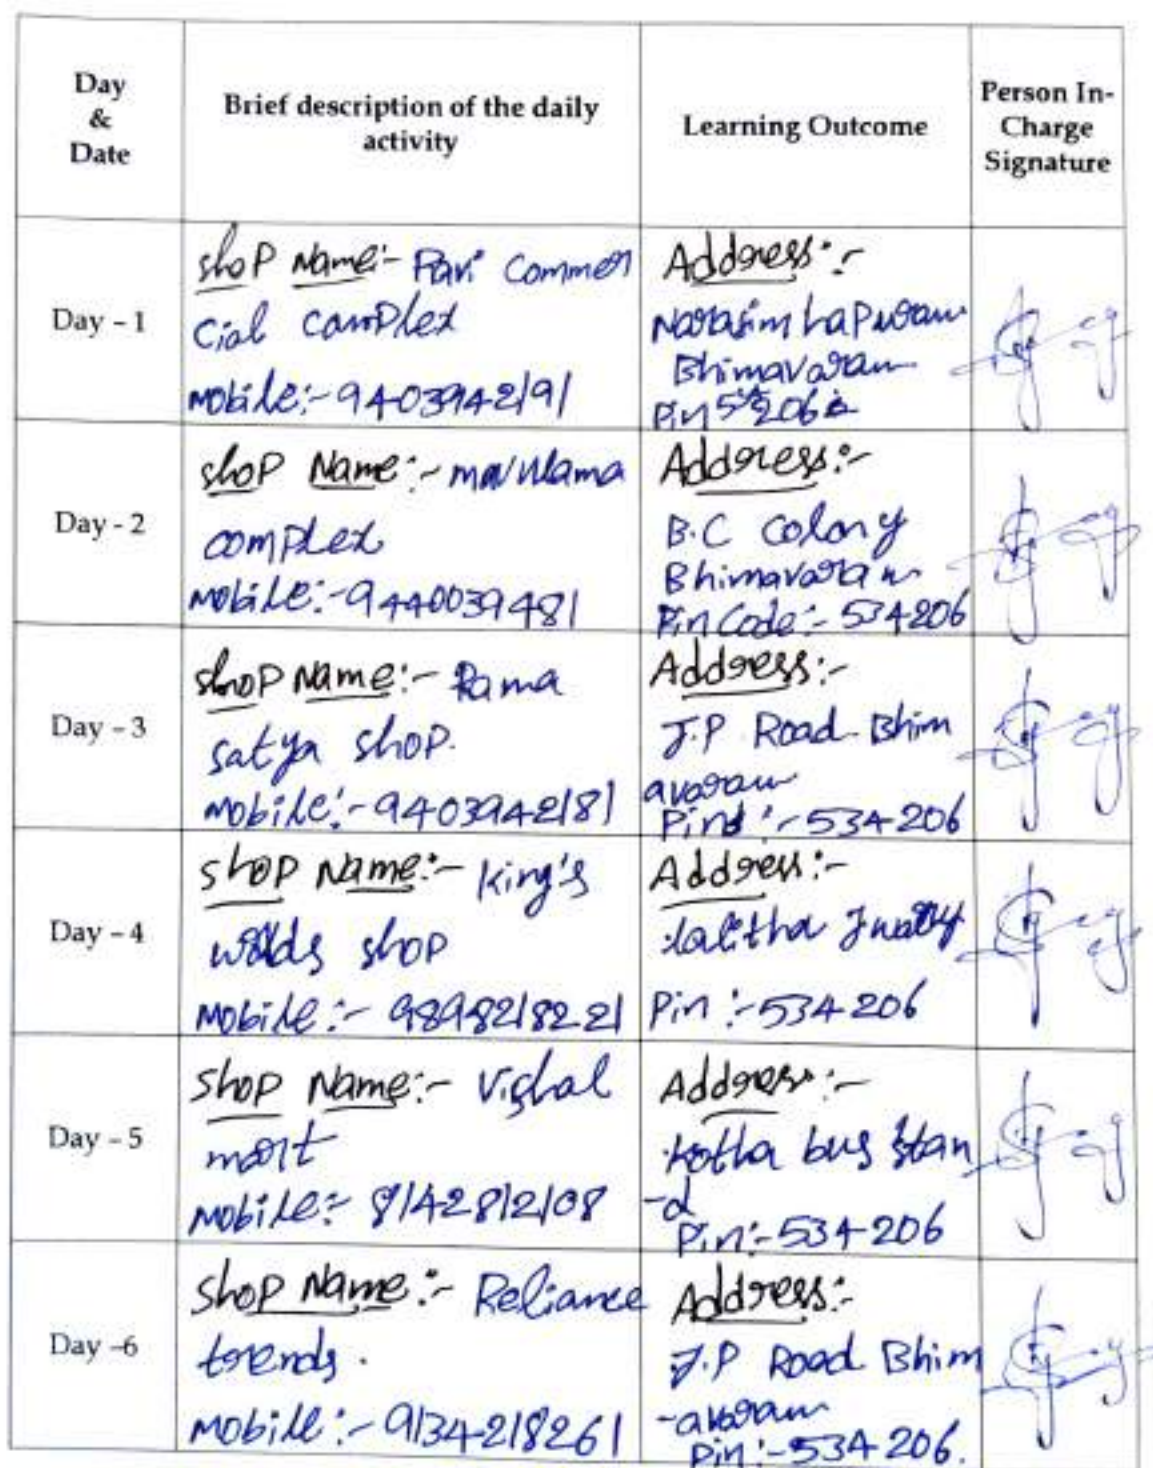 Day
&
Date
Brief description of the daily
activity
Learning Outcome
Person In-
Charge
Signature
Day – 1
shop Name:- Ravi Commer
cial complex
Mobile:- 9403942191
Address:-
Narasimhapuram
Bhimavaram
Pin
Day - 2
shop Name:- mavullama
complex
Mobile:- 9440039481
Address:-
B.C Colony
Bhimavaram
Pin Code:- 534206
Day – 3
shop Name:- Rama
satya shop.
Mobile:- 9403942181
Address:-
J.P Road Bhim
avaram
Pin :- 534206
Day – 4
shop Name:- King's
shop
Mobile:- 9898218221
Address:-
lalitha
Pin :- 534206
Day – 5
shop Name:- Vishal
mart
Mobile:- 8142812108
Address:-
kotha bus stan
-d
Pin:- 534206
Day –6
shop Name:- Reliance
trends.
Mobile:- 9134218261
Address:-
J.P Road Bhim
-avaram
Pin:- 534206.